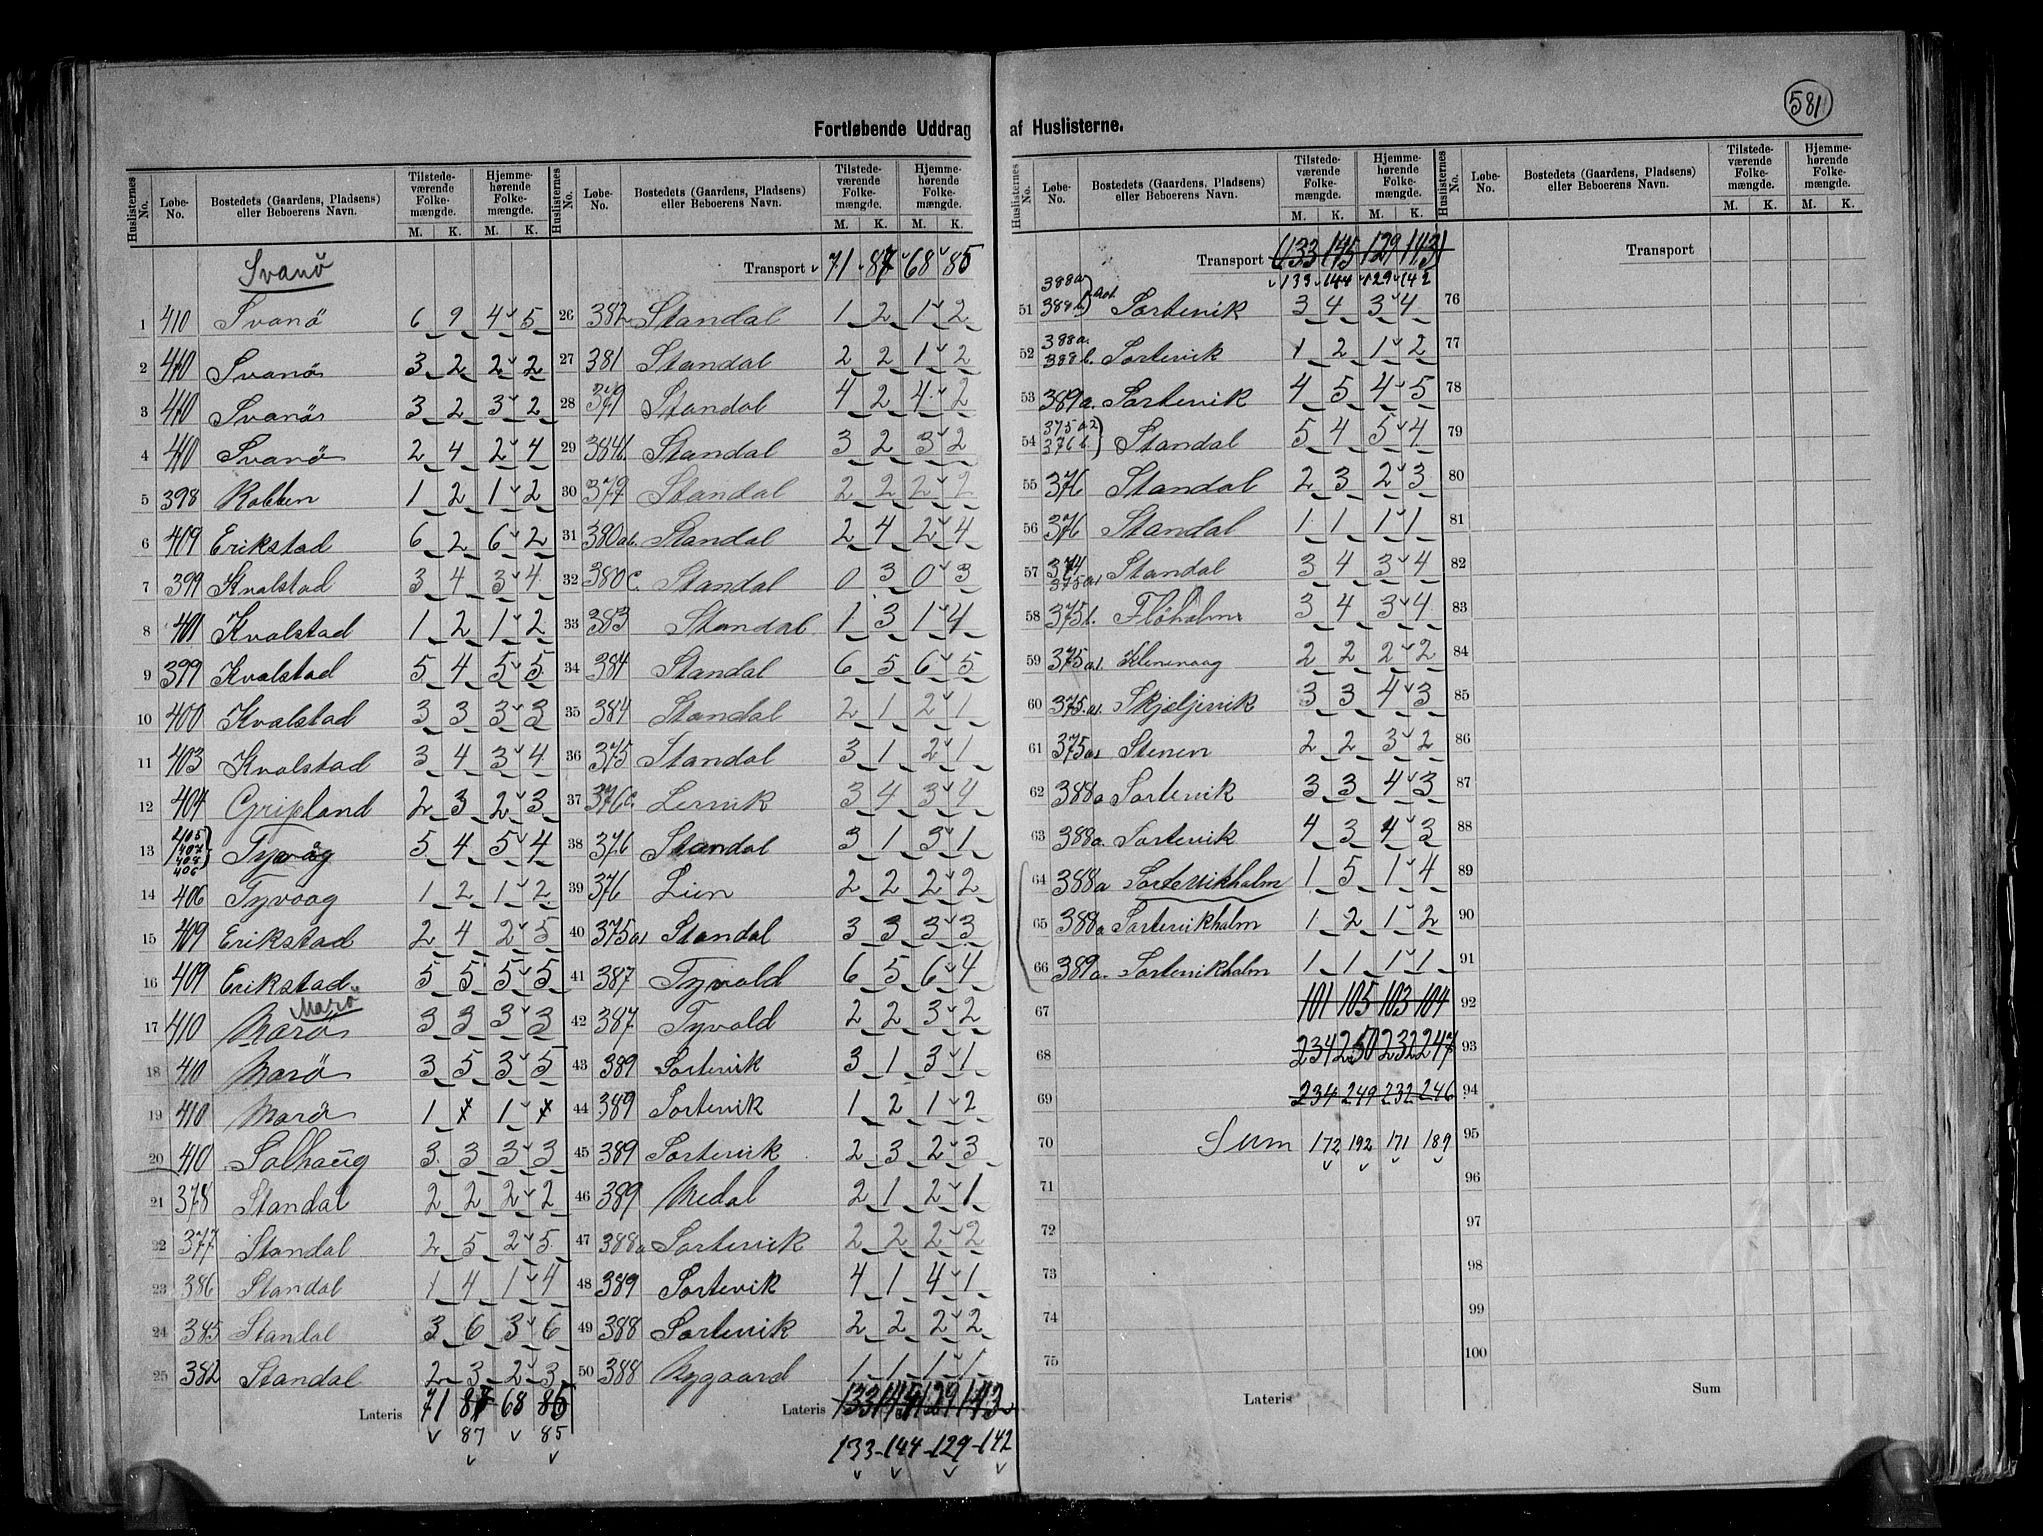 581
Fortløbende Uddrag af Huslisterne.
Huslisternes No. Løbe-No. Bostedets (Gaardens, Pladsens) eller Beboerens Navn. Tilstedeværende Folkemængde. M. K. Hjemmehørende Folkemængde. M. K.
Svanö
1 410 Svanö 6 9 4 5
2 410 Svanö 3 2 2 2
3 410 Svanö 3 2 3 2
4 410 Svanö 2 4 2 4
5 398 Rakken 1 2 1 2
6 409 Erikstad 6 2 6 2
7 399 Kvalstad 3 4 3 4
8 401 Kvalstad 1 2 1 2
9 399 Kvalstad 5 4 5 5
10 400 Kvalstad 3 3 3 3
11 403 Kvalstad 3 4 3 4
12 404 Gripland 2 3 2 3
13 405 407 408 406 Tyvåg 5 4 5 4
14 406 Tyvaag 1 2 1 2
15 409 Erikstad 2 4 2 5
16 409 Erikstad 5 5 5 5
Marö
17 410 Marö 3 3 3 3
18 410 Marö 3 5 3 5
19 410 Marö 1 1
20 410 Solhaug 3 3 3 3
21 378 Standal 2 2 2 2
22 377 Standal 2 5 2 5
23 386 Standal 1 4 1 4
24 385 Standal 3 6 3 6
25 382 Standal 2 3 2 3
Lateris 71 87 68 85
87 85
Huslisternes No. Løbe-No. Bostedets (Gaardens, Pladsens) eller Beboerens Navn. Tilstedeværende Folkemængde. M. K. Hjemmehørende Folkemængde. M. K.
Transport 71 87 68 85
26 382 Standal 1 2 1 2
27 381 Standal 2 2 1 2
28 379 Standal 4 2 4 2
29 384b Standal 3 2 3 2
30 379 Standal 2 2 2 2
31 380ab. Standal 2 4 2 4
32 380c. Standal 0 3 0 3
33 383 Standal 1 3 1 4
34 384 Standal 6 5 6 5
35 384 Standal 2 1 2 1
36 375 Standal 3 1 2 1
37 376c. Lervik 3 4 3 4
38 376 Standal 3 1 3 1
39 376 Lien 2 2 2 2
40 375a1 Standal 3 3 3 3
41 387 Tyvold 6 5 6 4
42 387 Tyvold 2 2 3 2
43 389 Sortevik 3 1 3 1
44 389 Sortevik 1 2 1 2
45 389 Sortevik 2 3 2 3
46 389 Medal 2 1 2 1
47 388a Sortevik 2 2 2 2
48 389 Sortevik 4 1 4 1
49 388 Sortevik 2 2 2 2
50 388 Nygaard 1 1 1 1
Lateris 133 145 129 143
133 - 144 - 129 - 142
Huslisternes No. Løbe-No. Bostedets (Gaardens, Pladsens) eller Beboerens Navn. Tilstedeværende Folkemængde. M. K. Hjemmehørende Folkemængde. M. K.
Transport (133 145 129 143)
133 144 129 142
51 388a 388b Sortevik 3 4 3 4
52 388a. 388b. Sortevik 1 2 1 2
53 389a. Sortevik 4 5 4 5
54 375a2 376b. Standal 5 4 5 4
55 376 Standal 2 3 2 3
56 376 Standal 1 1 1 1
57 374 375a1 Standal 3 4 3 4
58 375b. Flöholm 3 4 3 4
59 375a1. Klenevaag 2 2 2 2
60 375.a1. Skjeljevik 3 3 4 3
61 375a1 Stenen 2 2 3 2
62 388a Sortevik 3 3 4 3
63 388a. Sortevik 4 3 4 3
64 388a Sortevikholm 1 5 1 4
65 388a Sortevikholm 1 2 1 2
66 389a. Sortevikholm 1 1 1 1
67 101 105 103 104
68 234 250 232 247
69 234 249 232 246
70 Sum 172 192 171 189
71
72
73
74
75
Lateris
Huslisternes No. Løbe-No. Bostedets (Gaardens, Pladsens) eller Beboerens Navn. Tilstedeværende Folkemængde. M. K. Hjemmehørende Folkemængde. M. K.
Transport
76
77
78
79
80
81
82
83
84
85
86
87
88
89
90
91
92
93
94
95
96
97
98
99
100
Sum